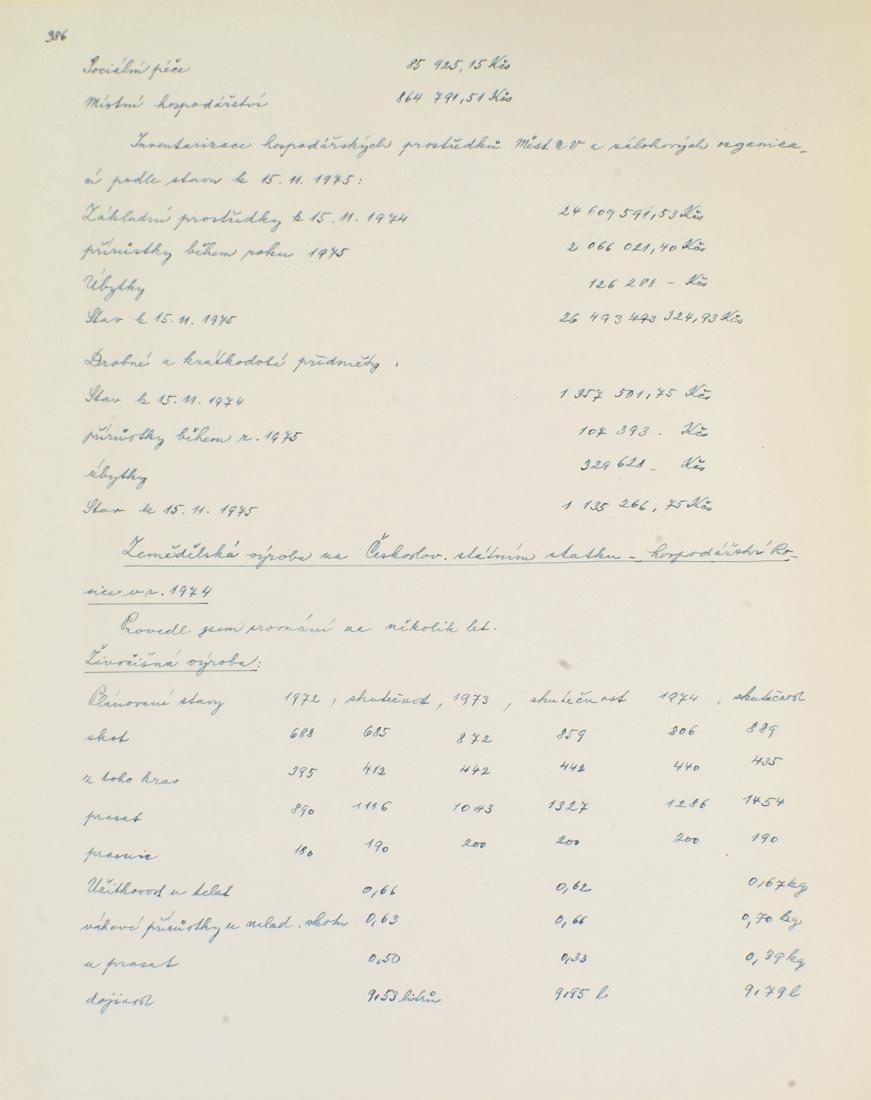 386
Sociální péče 85 925,15 Kčs
Místní hospodářství 864 791,51 Kčs
Inventarizace hospodářských prostředků MístNV a zálohových organiza_
cí podle stavu k 15.11.1975:
Základní prostředky k 15.11.1974 24 609 591,53 Kčs
přírůstky během roku 1975 2 066 021,40 Kčs
Úbytky 126 288 - Kčs
Stav k 15.11.1975 26 493 493 324,93 Kčs
Drobné a krátkodobé předměty.
Stav k 15.11.1974 1 357 501,75 Kčs
přírůstky během r. 1975 107 393 . Kčs
úbytky 329 628 - Kčs
Stav k 15.11.1975 1 135 266,75 Kčs
Zemědělská výroba na Českoslov. státním statku - hospodářství Ro-
sice v r. 1974
Provedl jsem srovnání za několik let.
Živočišná výroba:
Plánované stavy 1972 , skutečnost , 1973 , skutečnost 1974 , skutečnost
skot 688 685 872 859 806 889
z toho krav 395 412 442 442 440 435
prasat 890 1116 1043 1327 1286 1454
prasnic 180 190 200 200 200 190
Užitkovost u telat 0,66 0,62 0,67 kg
váhové přírůstky u mlad. skotu 0,63 0,66 0,70 kg
u prasat 0,50 0,33 0,39 kg
dojivost 9,53 litrů 9,95 l 9,79 l